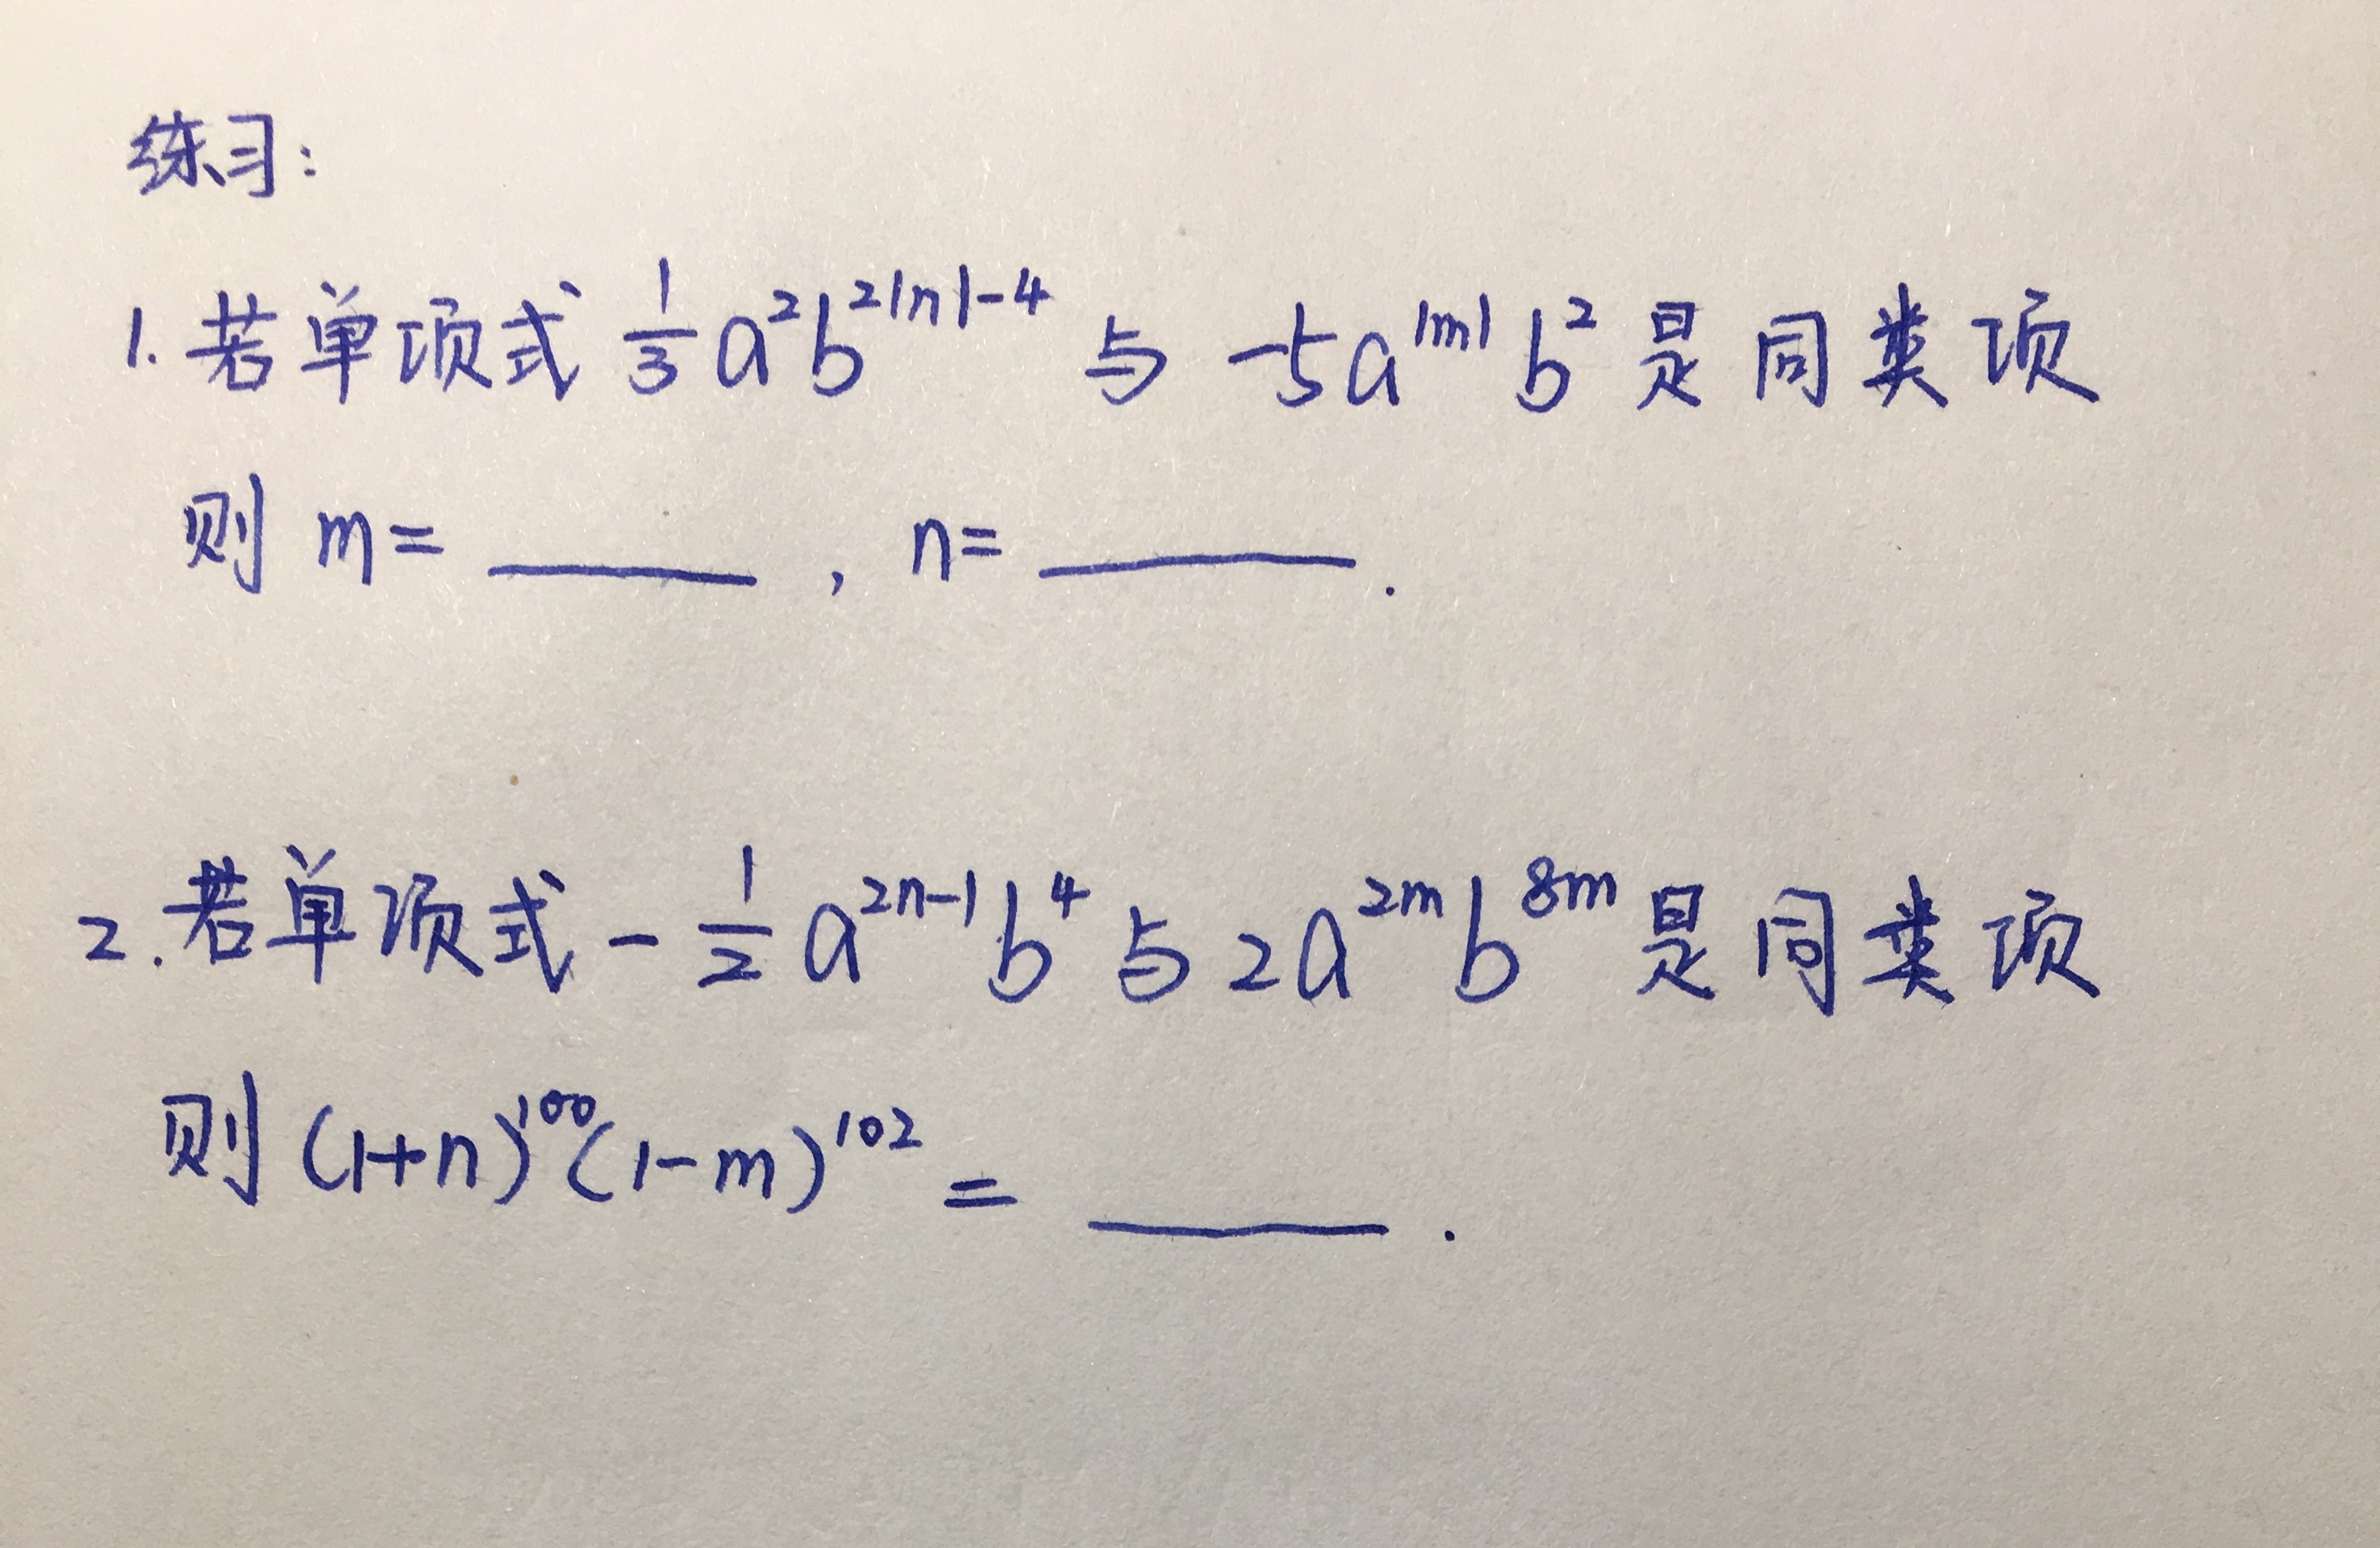 练习:
1. 若单项式 $\frac{1}{3}a^{2}b^{2|n|-4}$ 与 $-5a^{|m|}b^{2}$ 是同类项
则 m= ______ , n= ______ .
2. 若单项式 $-\frac{1}{2}a^{2n-1}b^{4}$ 与 $2a^{2m}b^{8m}$ 是同类项
则 $(1+n)^{100}(1-m)^{102}$ = ______ .